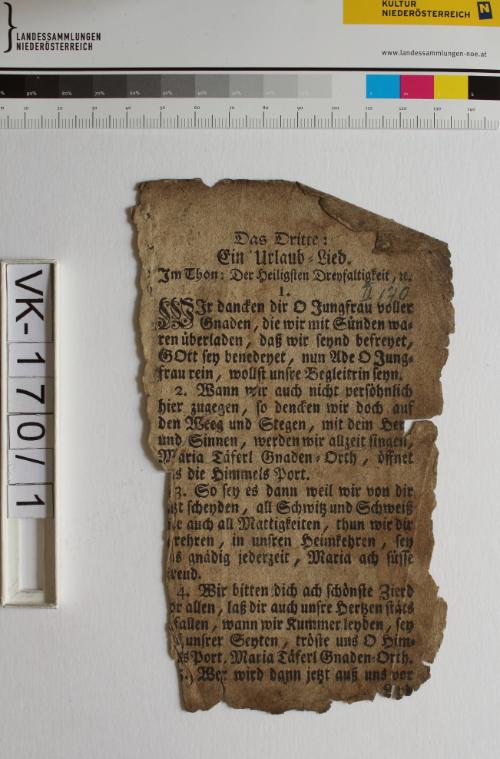 LANDESSAMMLUNGEN
NIEDERÖSTERREICH
KULTUR
NIEDERÖSTERREICH
www.landessammlungen-noe.at
VK-170/1
Das Dritte:
Ein Urlaub-Lied.
Im Thon: Der Heiligsten Dreyfaltigkeit, ꝛc.
II 170
1.
WIr dancken dir O Jungfrau voller
Gnaden, die wir mit Sünden wa-
ren überladen, daß wir seynd befreyet,
GOtt sey benedeyet, nun Ade O Jung-
frau rein, wollst unsre Begleitrin seyn.
2. Wann wir auch nicht persöhnlich
hier zugegen, so dencken wir doch auf
den Weeg und Stegen, mit dem Her
und Sinnen, werden wir allzeit singen,
Maria Täferl Gnaden-Orth, öffnet
s die Himmels Port.
3. So sey es dann weil wir von dir
tzt scheyden, all Schwitz und Schweiß
auch all Mattigkeiten, thun wir dir
rehren, in unsren Heimkehren, sey
s gnädig jederzeit, Maria ach süsse
reud.
4. Wir bitten dich ach schönste Zierd
or allen, laß dir auch unsre Hertzen stäts
fallen, wann wir Kummer leyden, sey
unsrer Seyten, tröste uns O Him-
ls Port, Maria Täferl Gnaden-Orth.
5. Wer wird dann jetzt auß uns vor